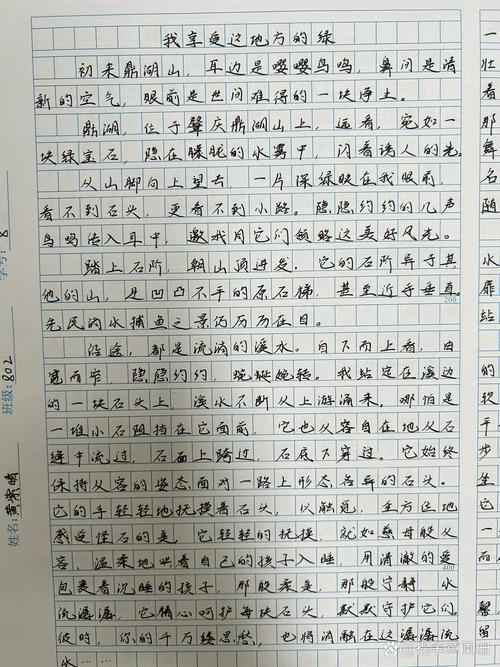 我享受这地方的绿
初来鼎湖山，耳边是嘤嘤鸟鸣，鼻间是清
新的空气，眼前是世间难得的一块净土。
鼎湖，位于肇庆鼎湖山上，远看，宛如一
块绿宝石，隐在朦胧的水雾中，闪着诱人的光。
从山脚向上望去，一片深绿映在我眼前，
看不到石头，更看不到小路。隐隐约约的几声
鸟鸣传入耳中，邀我用它们领略这美好风光。
踏上石阶，朝山顶进发。它的石阶异于其
他的山，是凹凸不平的原石梯，甚至近乎垂直
200
先民沟水捕鱼之景仍历历在目。
沿途，都是流淌的溪水。自下而上看，由
宽而窄，隐隐约约，蜿蜒婉转。我站定在溪边
的一块石头上，溪水不断从上游涌来。哪怕是
一堆小石阻挡在它面前，它也从容自在地从石
缝中流过，石面上跨过，石底下穿过。它始终
保持从容的姿态面对一路上形态各异的石头。
它的手轻轻地抚摸着石头，以触觉，全方位地
感受怪石的美。它轻轻的抚摸，就如慈母般从
容、温柔地哄着自己的孩子入睡，用清澈的爱
包裹着沉睡的孩子，那般柔美，那般宁静。水
400
流潺潺，它精心呵护每块石头，默默守护它们。
彼时，你的千万缕思愁，也将消融在这潺潺流
水……
学号：8
班级：802
姓名：黄紫晴